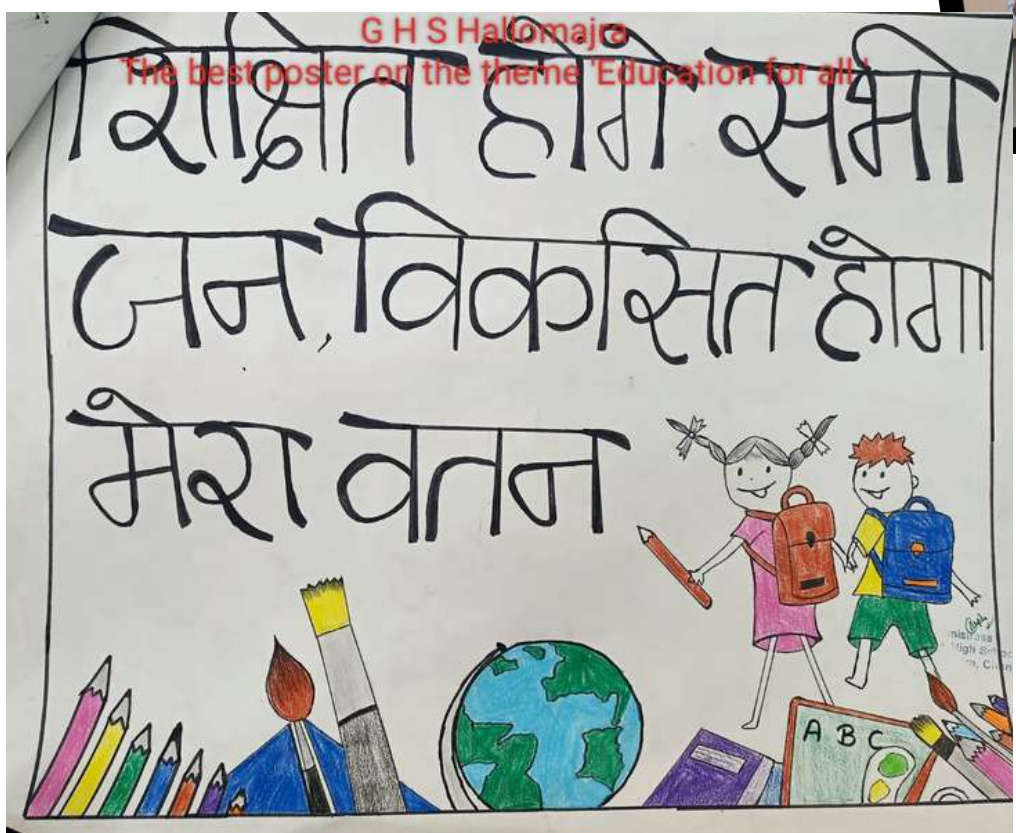 G H S Hallomajra
The best poster on the theme 'Education for all'
शिक्षित होगें सभी
जन, विकसित होगा
मेरा वतन
A B C